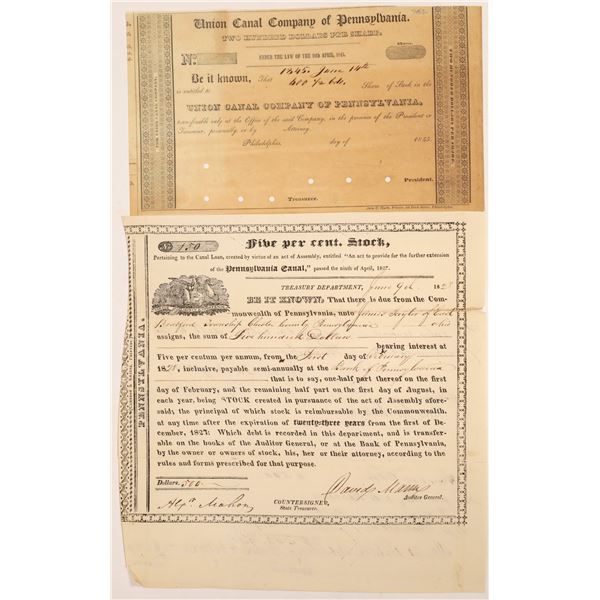 Union Canal Company of Pennsylvania.
TWO HUNDRED DOLLARS PER SHARE.
No.
UNDER THE LAW OF THE 16th APRIL, 1845.
Share.
1845. June 14th
Be it known, That
600 94 cts.
is entitled to Share of Stock in the
UNION CANAL COMPANY OF PENNSYLVANIA,
transferable only at the Office of the said Company, in the presence of the President or
Treasurer, personally, or by Attorney.
Philadelphia, day of 1845.
President.
Treasurer.
TWO HUNDRED DOLLARS PER SHARE.
No 150
Five per cent. Stock,
Pertaining to the Canal Loan, created by virtue of an act of Assembly, entitled "An act to provide for the further extension
of the Pennsylvania Canal," passed the ninth of April, 1827.
TREASURY DEPARTMENT, June 9th 1828
BE IT KNOWN, That there is due from the Com-
monwealth of Pennsylvania, unto James Taylor of East
Bradford Township Chester County Pennsylvania his
assigns, the sum of Five hundred Dollars
bearing interest at
Five per centum per annum, from the First day of February
1828, inclusive, payable semi-annually at the Bank of Pennsylvania
that is to say, one-half part thereof on the first
day of February, and the remaining half part on the first day of August, in
each year, being STOCK created in pursuance of the act of Assembly afore-
said; the principal of which stock is reimbursable by the Commonwealth,
at any time after the expiration of twenty-three years from the first of De-
cember, 1827. Which debt is recorded in this department, and is transfer-
able on the books of the Auditor General, or at the Bank of Pennsylvania,
by the owner or owners of stock, his, her or their attorney, according to the
rules and forms prescribed for that purpose.
Dollars, 500
David Mann
Auditor General.
COUNTERSIGNED,
State Treasurer.
Alexr. Mahon
PENNSYLVANIA.